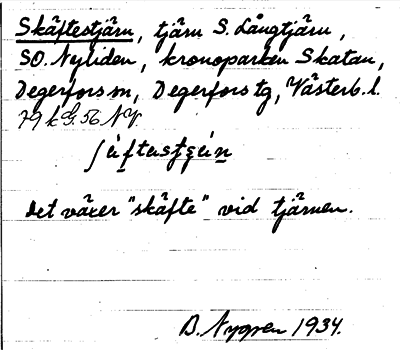 Skäftestjärn, tjärn S. Långtjärn,
SO. Nyliden, kronoparken Skatan,
Degerfors sn, Degerfors tg, Västerb. l.
79 k G. 56 NV.
Det växer "skäfte" vid tjärnen.
B. Nygren 1934.